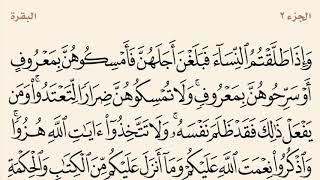 الجزء ٢
البقرة
وَإِذَا طَلَّقْتُمُ ٱلنِّسَآءَ فَبَلَغْنَ أَجَلَهُنَّ فَأَمْسِكُوهُنَّ بِمَعْرُوفٍ
أَوْ سَرِّحُوهُنَّ بِمَعْرُوفٍ ۚ وَلَا تُمْسِكُوهُنَّ ضِرَارًا لِّتَعْتَدُوا۟ ۚ وَمَن
يَفْعَلْ ذَٰلِكَ فَقَدْ ظَلَمَ نَفْسَهُۥ ۚ وَلَا تَتَّخِذُوٓا۟ ءَايَٰتِ ٱللَّهِ هُزُوًا ۚ
وَٱذْكُرُوا۟ نِعْمَتَ ٱللَّهِ عَلَيْكُمْ وَمَآ أَنزَلَ عَلَيْكُم مِّنَ ٱلْكِتَٰبِ وَٱلْحِكْمَةِ